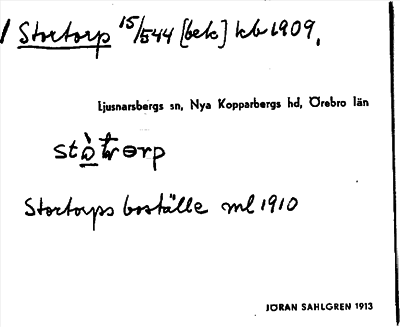 / Stortorp 15/544 [bek] kb 1909.
Ljusnarsbergs sn, Nya Kopparbergs hd, Örebro län
Stortorps boställe ml 1910
JÖRAN SAHLGREN 1913